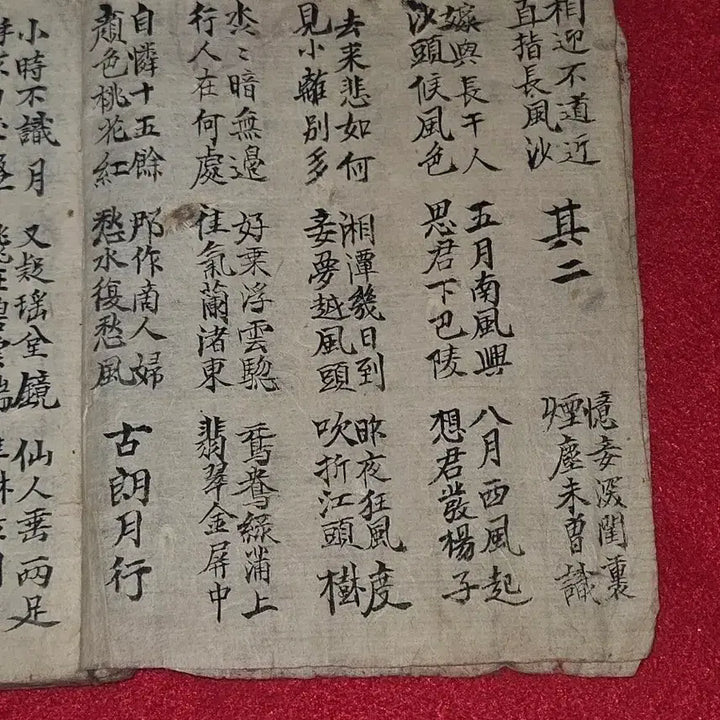 相迎不道近
直指長風沙
其二
憶妾深閨裏
煙塵未曾識
嫁與長干人
沙頭候風色
五月南風興
思君下巴陵
八月西風起
想君發楊子
去来悲如何
見小離別多
湘潭幾日到
妾夢越風頭
昨夜狂風度
吹折江頭樹
暗無邊
行人在何處
好乗浮雲驄
佳氣蘭渚東
鴛鴦綠蒲上
翡翠金屏中
自憐十五餘
顏色桃花紅
那作商人婦
愁水復愁風
古朗月行
小時不識月
又疑瑶全鏡
仙人垂兩足